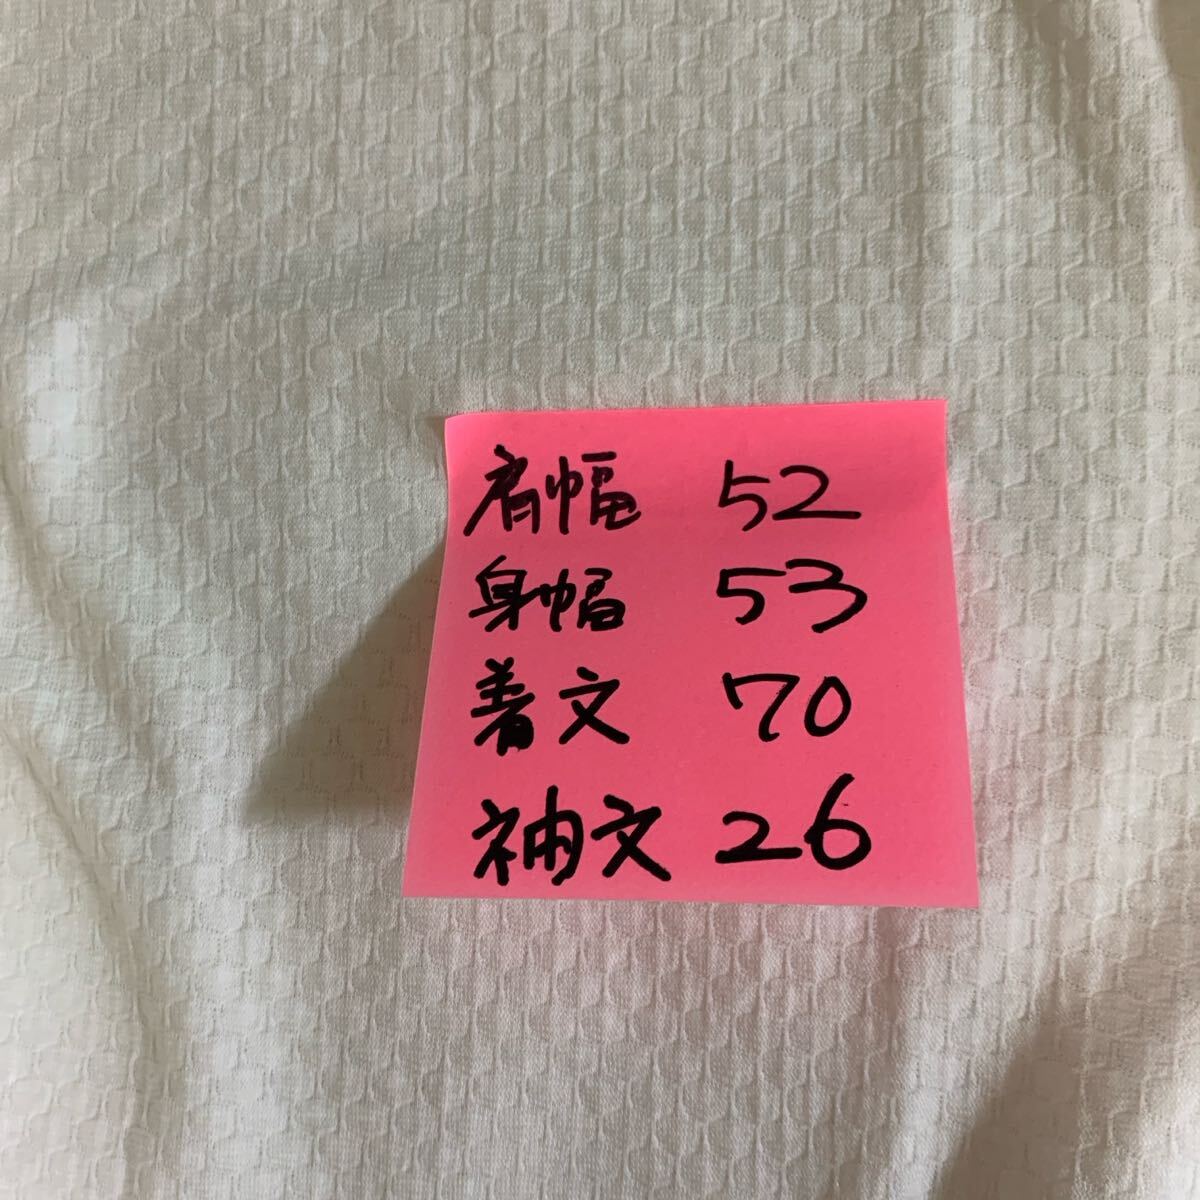 肩幅 52
身幅 53
着文 70
袖文 26